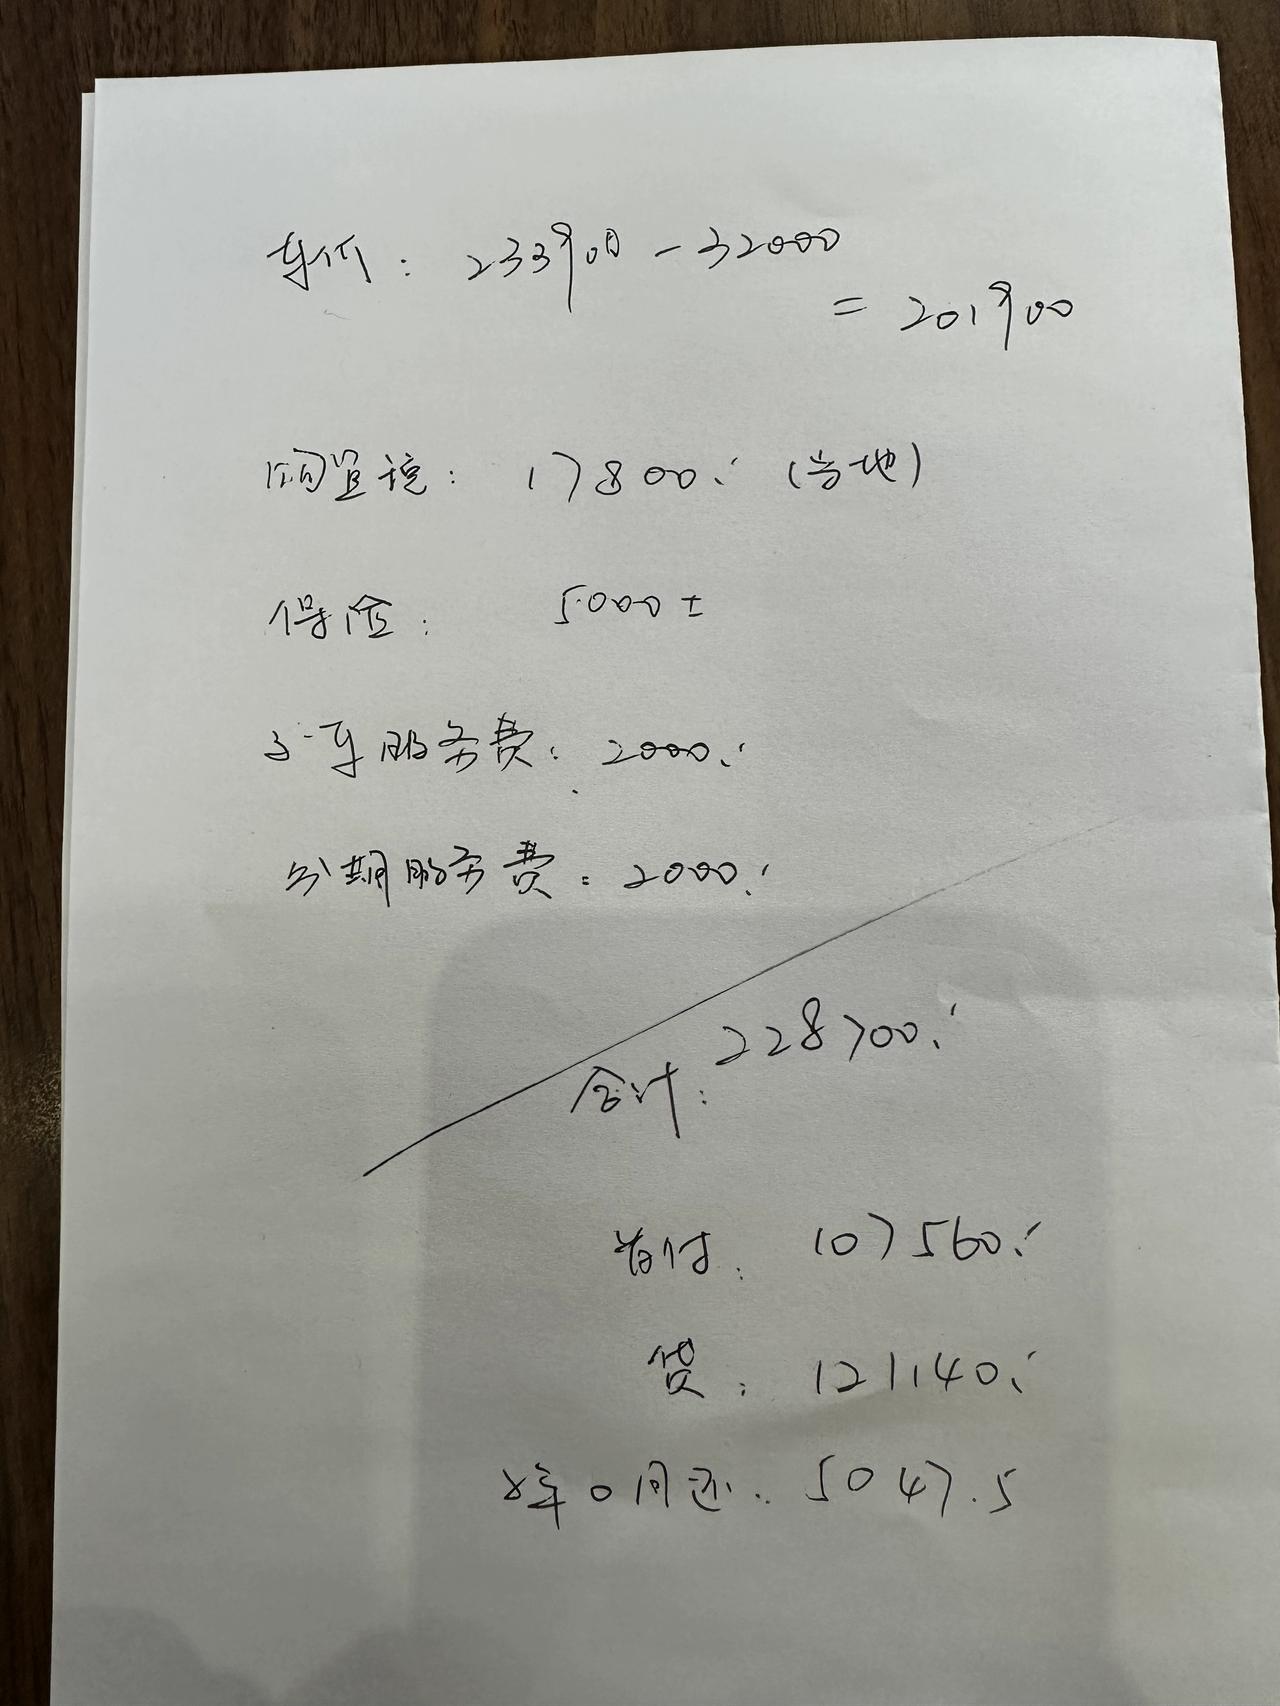 车价：233900－32000
＝201900
购置税：17800.（当地）
保险：5000±
车服务费：2000.
分期服务费：2000.
合计：228700.
首付：107560.
贷：121140.
2年0月还：5047.5